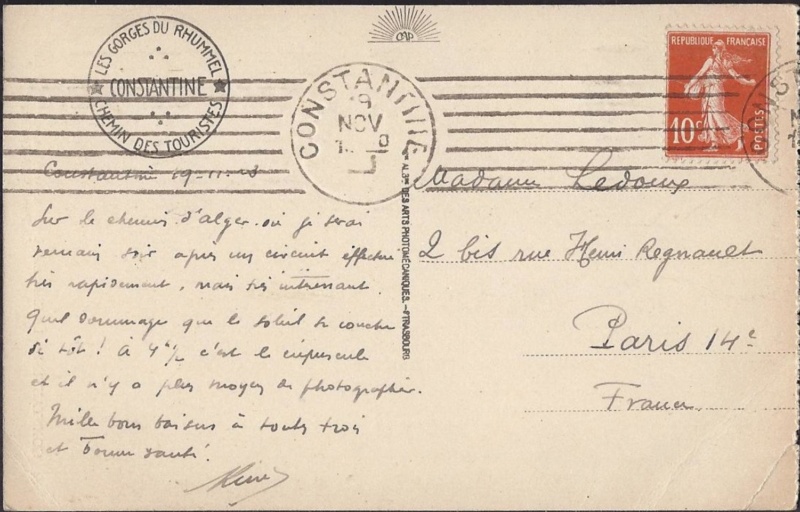 LES GORGES DU RHUMMEL
CONSTANTINE
CHEMIN DES TOURISTES
CAP
CONSTANTINE
19
NOV
RÉPUBLIQUE FRANÇAISE
10c
POSTES
Constantine 19-11-
Sur le chemin d'alger où je serai
demain soir après un circuit effectué
très rapidement, mais très intéressant.
Quel dommage que le soleil se couche
si tôt! À 4h1/2 c'est le crépuscule
et il n'y a plus moyen de photographier.
Mille bons baisers à toutes trois
et bonne santé.
Madame Ledoux
2 bis rue Henri Regnault
Paris 14e
France
ALSNE DES ARTS PHOTOMÉCANIQUES.-STRASBOURG